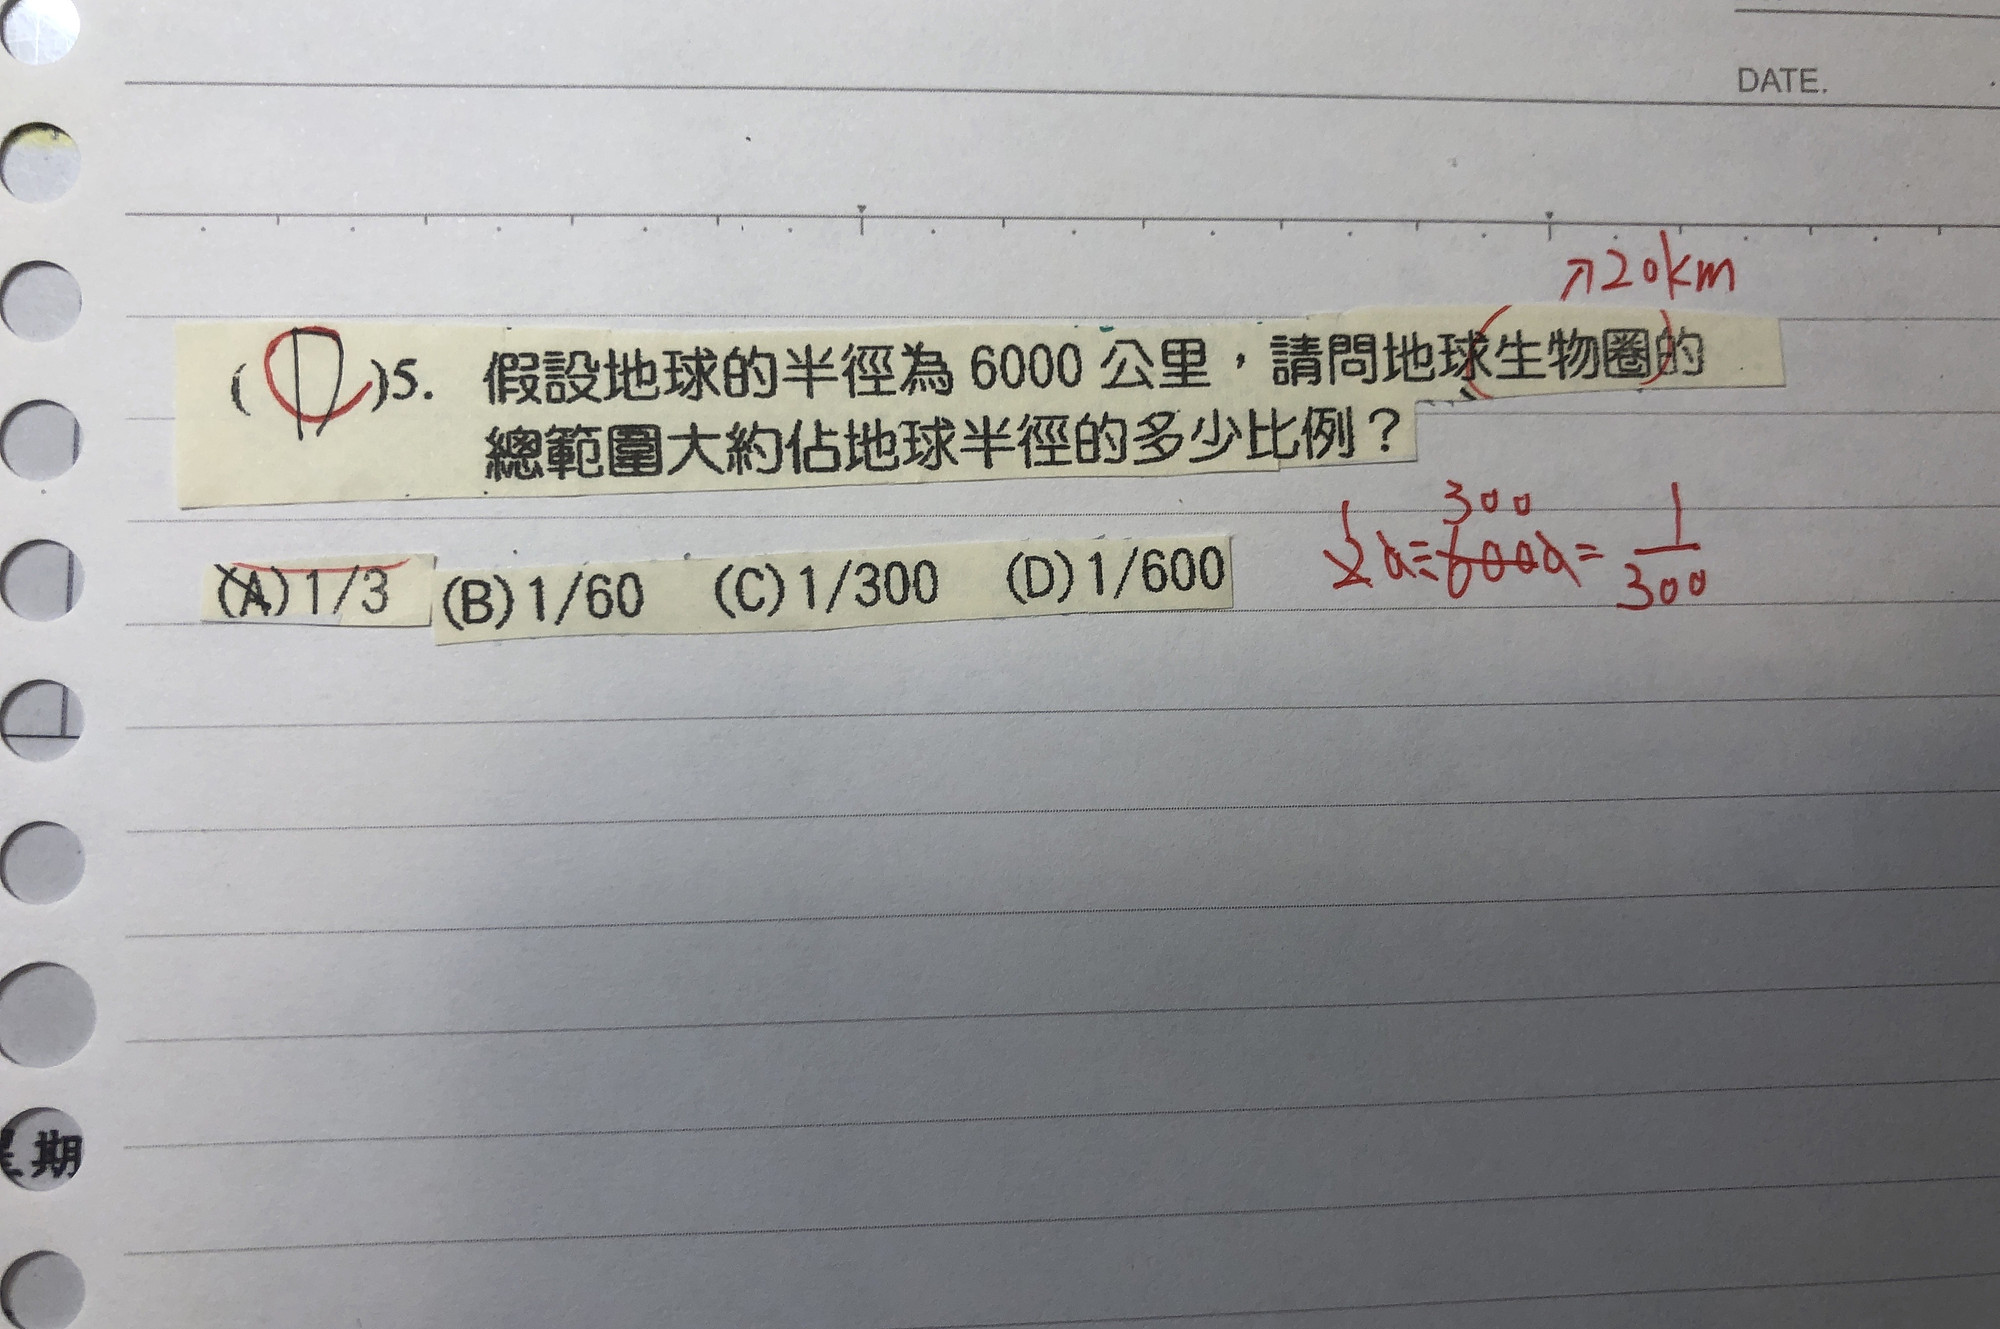 DATE.
↗20km
(D)5. 假設地球的半徑為 6000 公里，請問地球(生物圈)的
總範圍大約佔地球半徑的多少比例？
300
(A)1/3 (B)1/60 (C)1/300 (D)1/600 20÷6000=1/300
期